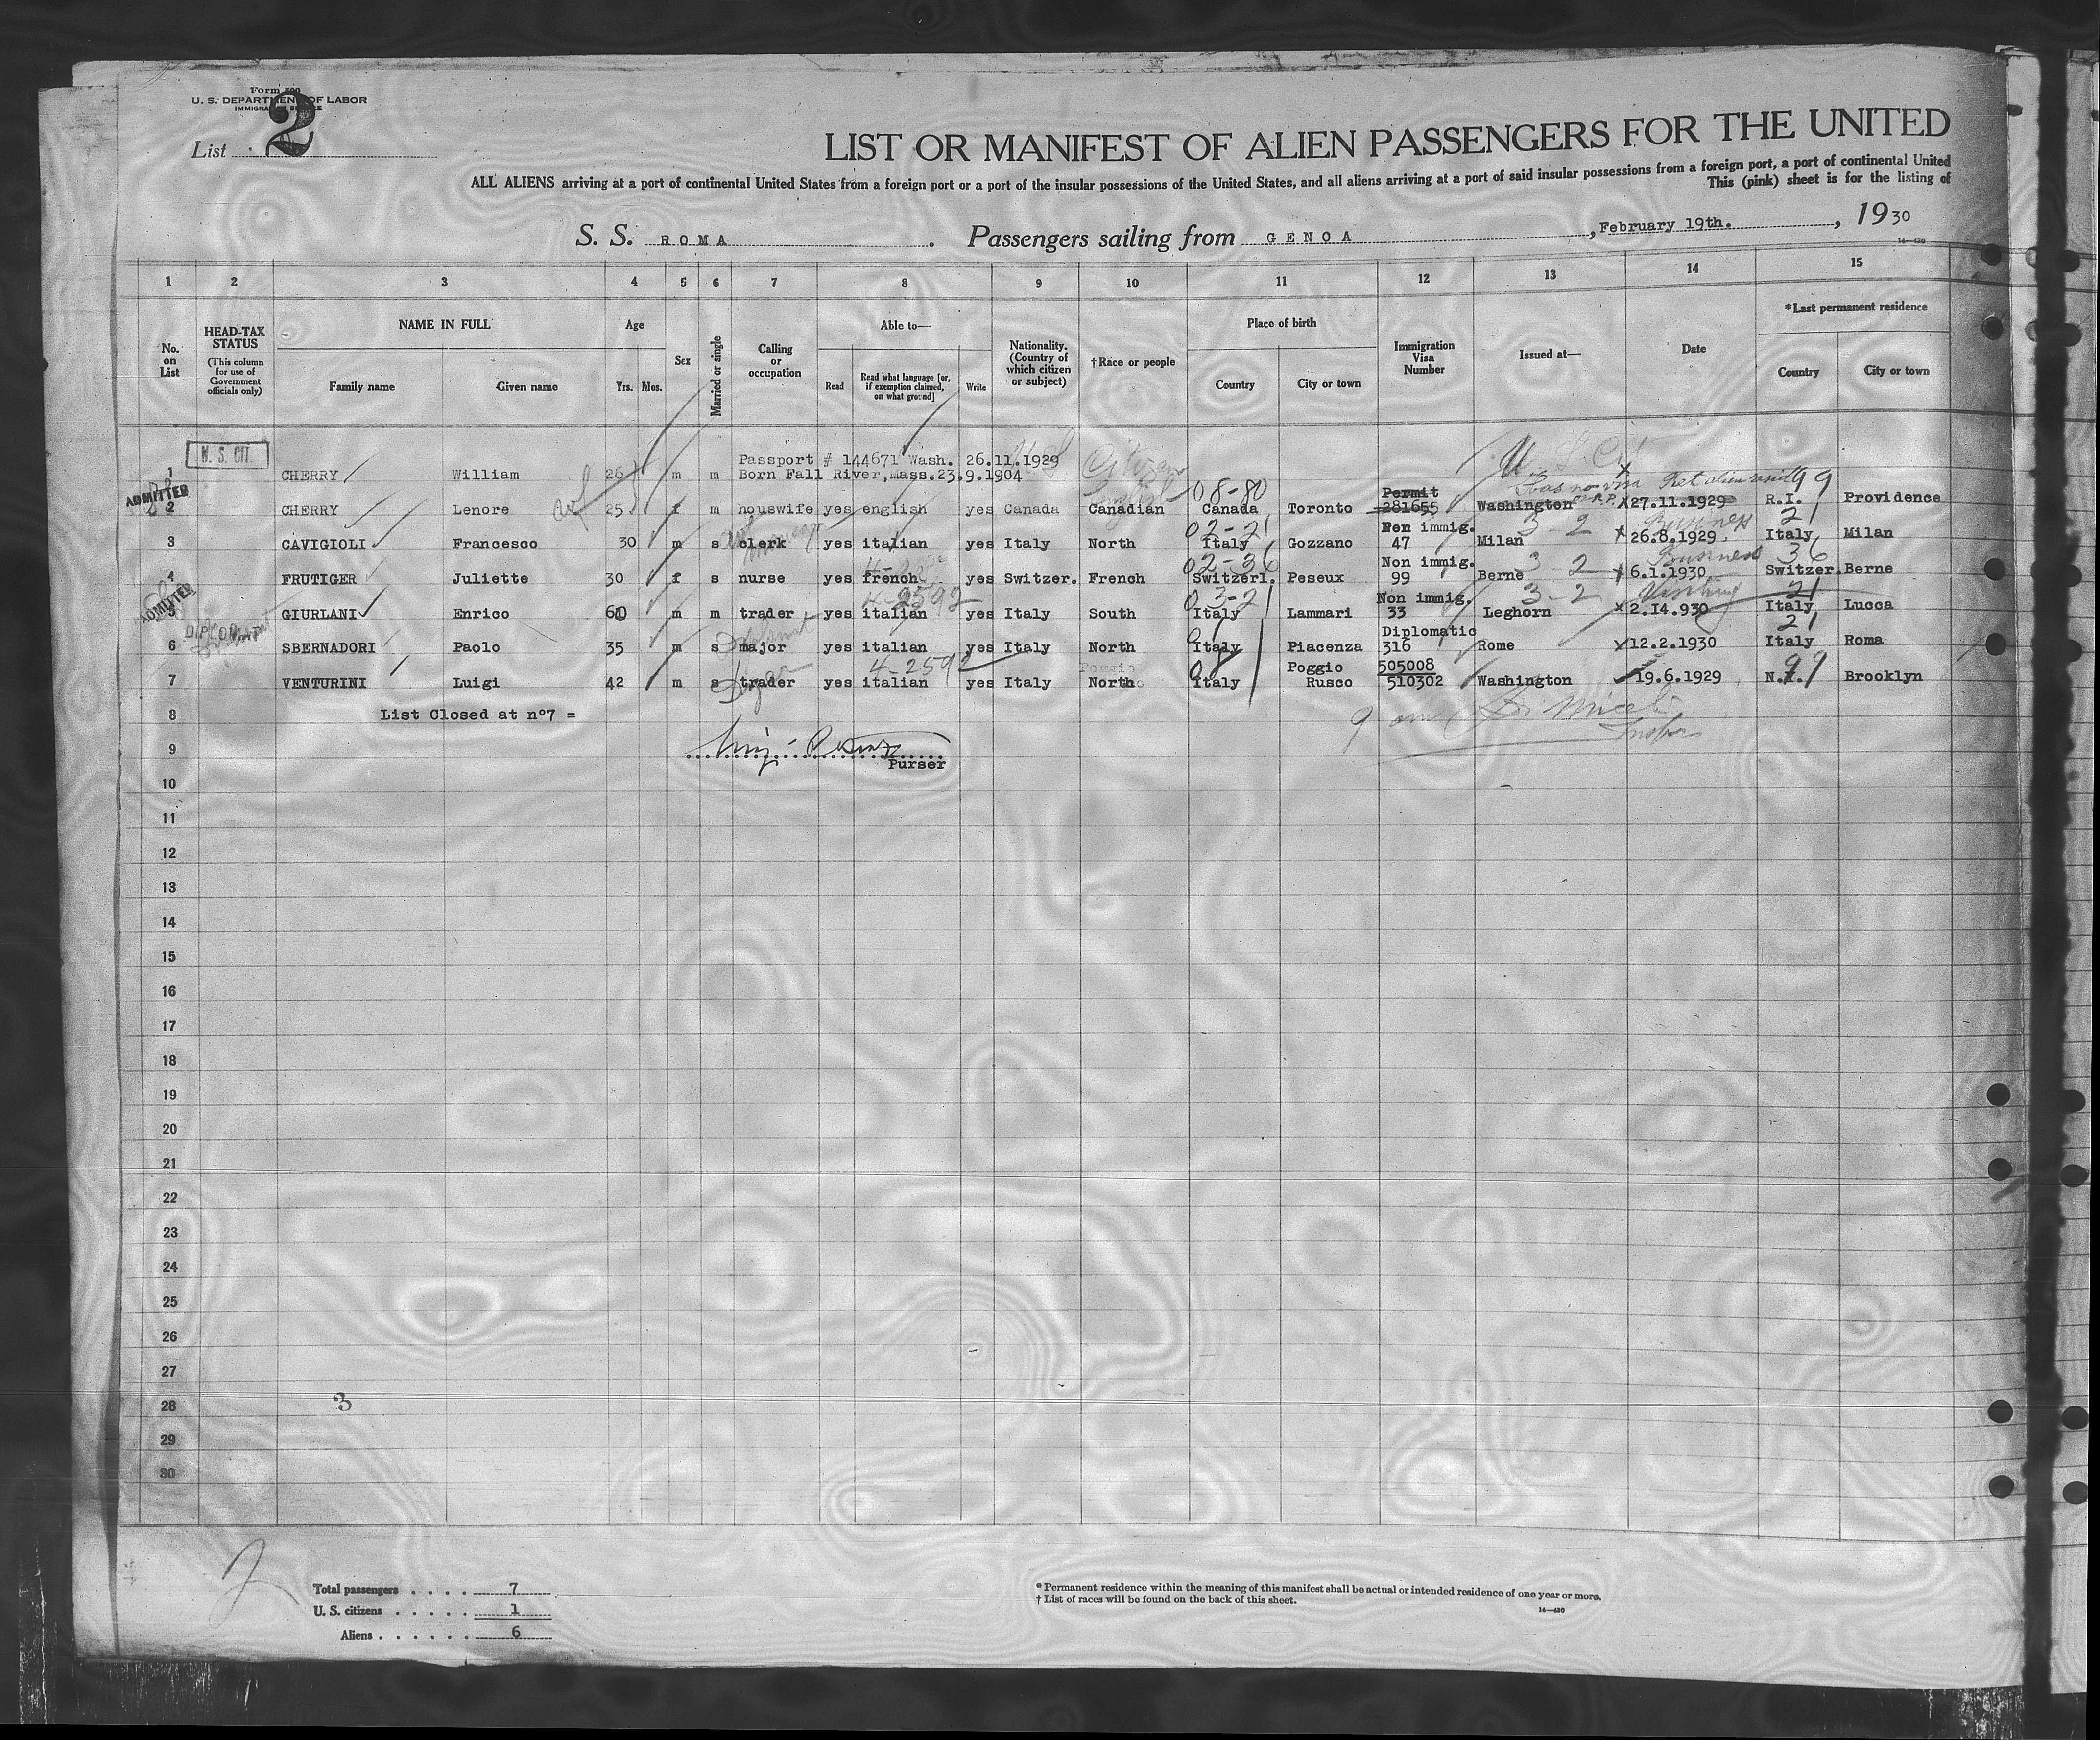 Form 500
U. S. DEPARTMENT OF LABOR
IMMIGRATION SERVICE
List 2
LIST OR MANIFEST OF ALIEN PASSENGERS FOR THE UNITED
ALL ALIENS arriving at a port of continental United States from a foreign port or a port of the insular possessions of the United States, and all aliens arriving at a port of said insular possessions from a foreign port, a port of continental United
This (pink) sheet is for the listing of
S. S. ROMA. Passengers sailing from GENOA, February 19th., 1930
14—430
1 2 3 4 5 6 7 8 9 10 11 12 13 14 15
No. on List
HEAD-TAX STATUS (This column for use of Government officials only)
NAME IN FULL
Family name Given name
Age
Yrs. Mos.
Sex
Married or single
Calling or occupation
Able to—
Read Read what language [or, if exemption claimed, on what ground] Write
Nationality. (Country of which citizen or subject)
†Race or people
Place of birth
Country City or town
Immigration Visa Number
Issued at—
Date
*Last permanent residence
Country City or town
U. S. CIT. Passport # 144671 Wash. 26.11.1929 U S Citizen U. S. Cit
1 CHERRY William 26 m m Born Fall River, Mass. 23.9.1904
ADMITTED English 08-80 Permit has no visa 99
2 CHERRY Lenore 25 f m houswife yes english yes Canada Canadian Canada Toronto 281655 Washington 27.11.1929 R.I. Providence
02-21 Non immig. 3-2 Business 21
3 CAVIGIOLI Francesco 30 m s clerk yes italian yes Italy North Italy Gozzano 47 Milan 26.8.1929 Italy Milan
02-36 Non immig. 3-2 Business 36
4 FRUTIGER Juliette 30 f s nurse yes french yes Switzer. French Switzerl. Peseux 99 Berne 6.1.1930 Switzer. Berne
ADMITTED 4-2592 03-21 Non immig. 3-2 Visiting 21
5 GIURLANI Enrico 60 m m trader yes italian yes Italy South Italy Lammari 33 Leghorn 2.14.930 Italy Lucca
DIPLOMAT Diplomatic 21
6 SBERNADORI Paolo 35 m s major yes italian yes Italy North Italy Piacenza 316 Rome 12.2.1930 Italy Roma
4-2592 Poggio 505008 99
7 VENTURINI Luigi 42 m s trader yes italian yes Italy North Italy Rusco 510302 Washington 19.6.1929 N.Y. Brooklyn
8 List Closed at n°7 =
9
Purser
10
11
12
13
14
15
16
17
18
19
20
21
22
23
24
25
26
27
28 3
29
30
2
Total passengers . . . . 7
U. S. citizens . . . . . 1
Aliens . . . . . . 6
* Permanent residence within the meaning of this manifest shall be actual or intended residence of one year or more.
† List of races will be found on the back of this sheet.
14—430